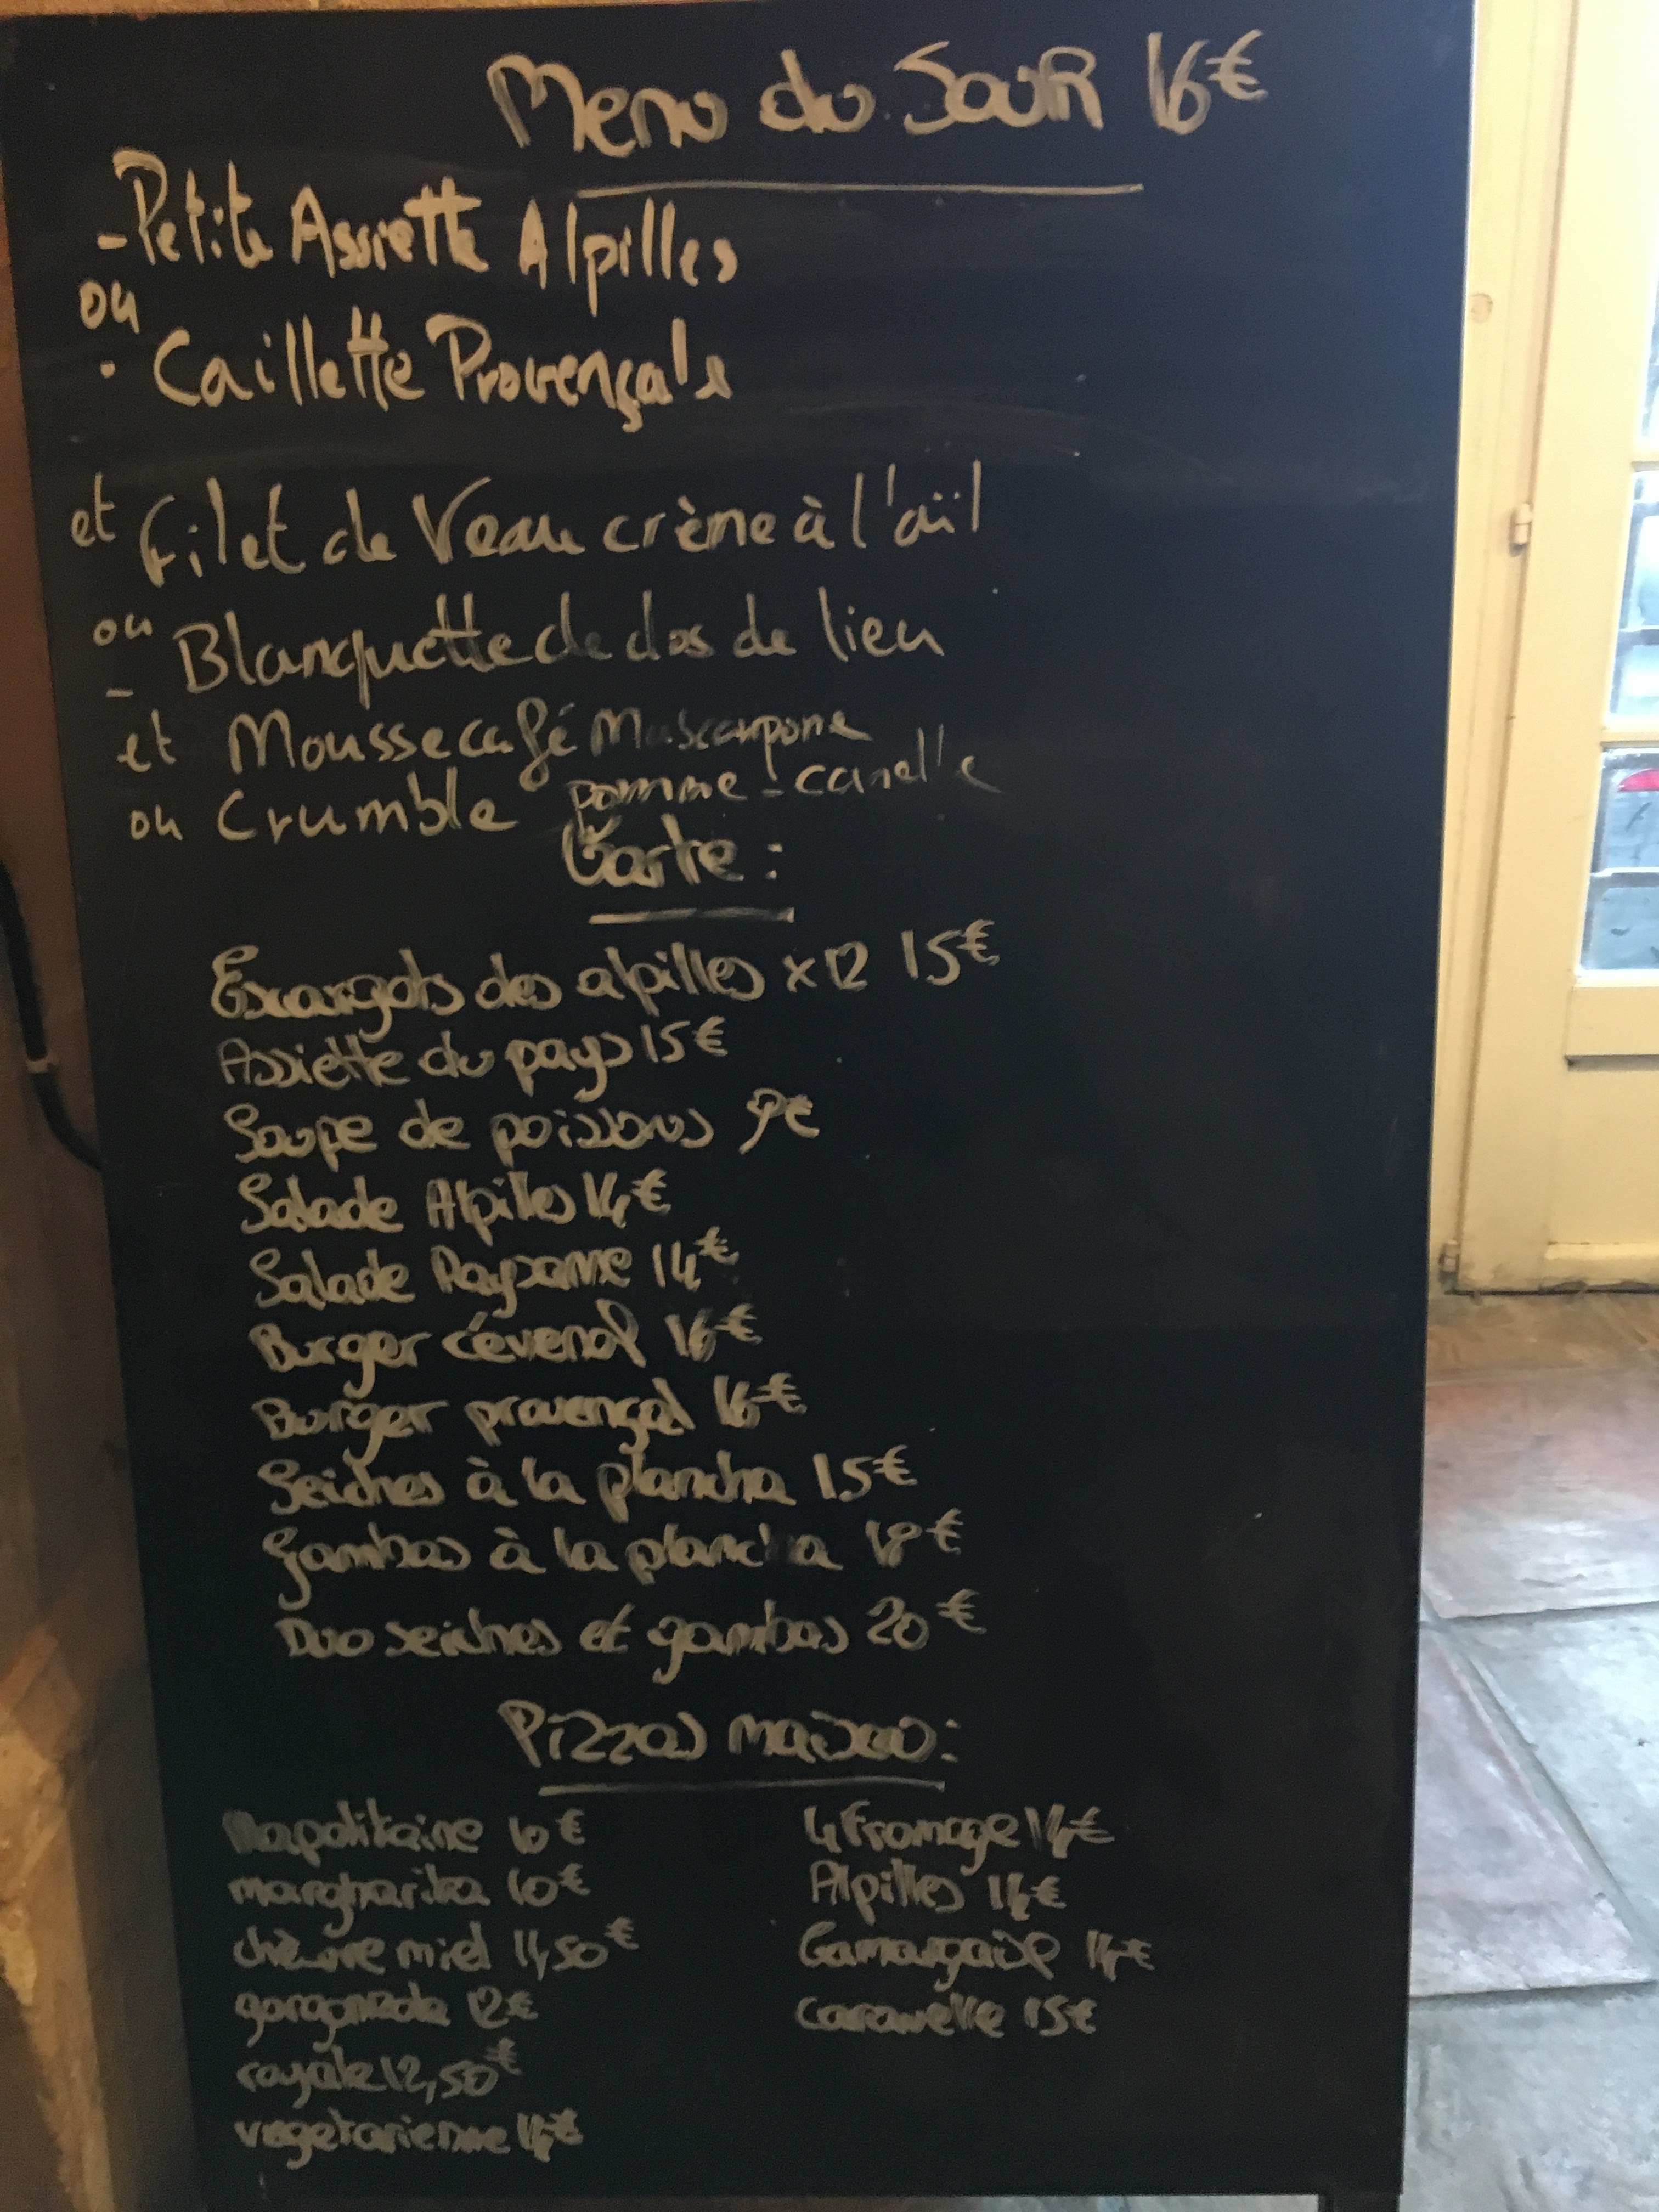 Menu du Jour 16€
- Petite Assiette Alpilles
ou
· Caillette Provençale
et Filet de Veau crème à l'aïl
ou
- Blanquette de dos de lieu
et Mousse café Mascarpone
ou Crumble pomme-canelle
Carte :
Escargots des alpilles x12 15€
Assiette du pays 15€
Soupe de poissons 9€
Salade Alpilles 14€
Salade Paysanne 14€
Burger cévenol 16€
Burger provençal 16€
Seiches à la plancha 15€
Gambas à la plancha 18€
Duo seiches et gambas 20€
Pizzas maison :
Napolitaine 10€
margharita 10€
chèvre miel 11,50€
gorgonzola 12€
royale 12,50€
vegetarienne 14€
4 Fromage 14€
Alpilles 14€
Camargaise 14€
caravelle 15€